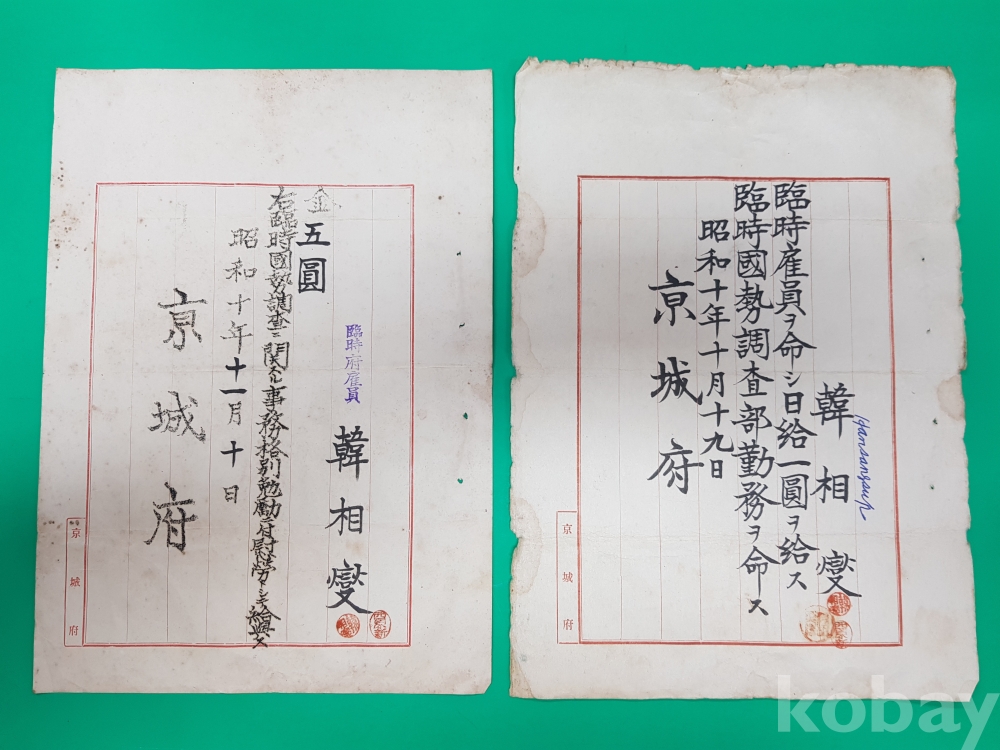 臨時府雇員
韓相燮
金五圓
右臨時國勢調査ニ関スル事務格別勉勵ニ付慰労トシテ給與ス
昭和十年十一月十日
京城府
京城府
Hansangsup
韓相燮
臨時雇員ヲ命シ日給一圓ヲ給ス
臨時國勢調査部勤務ヲ命ス
昭和十年十月十九日
京城府
京城府
kobay